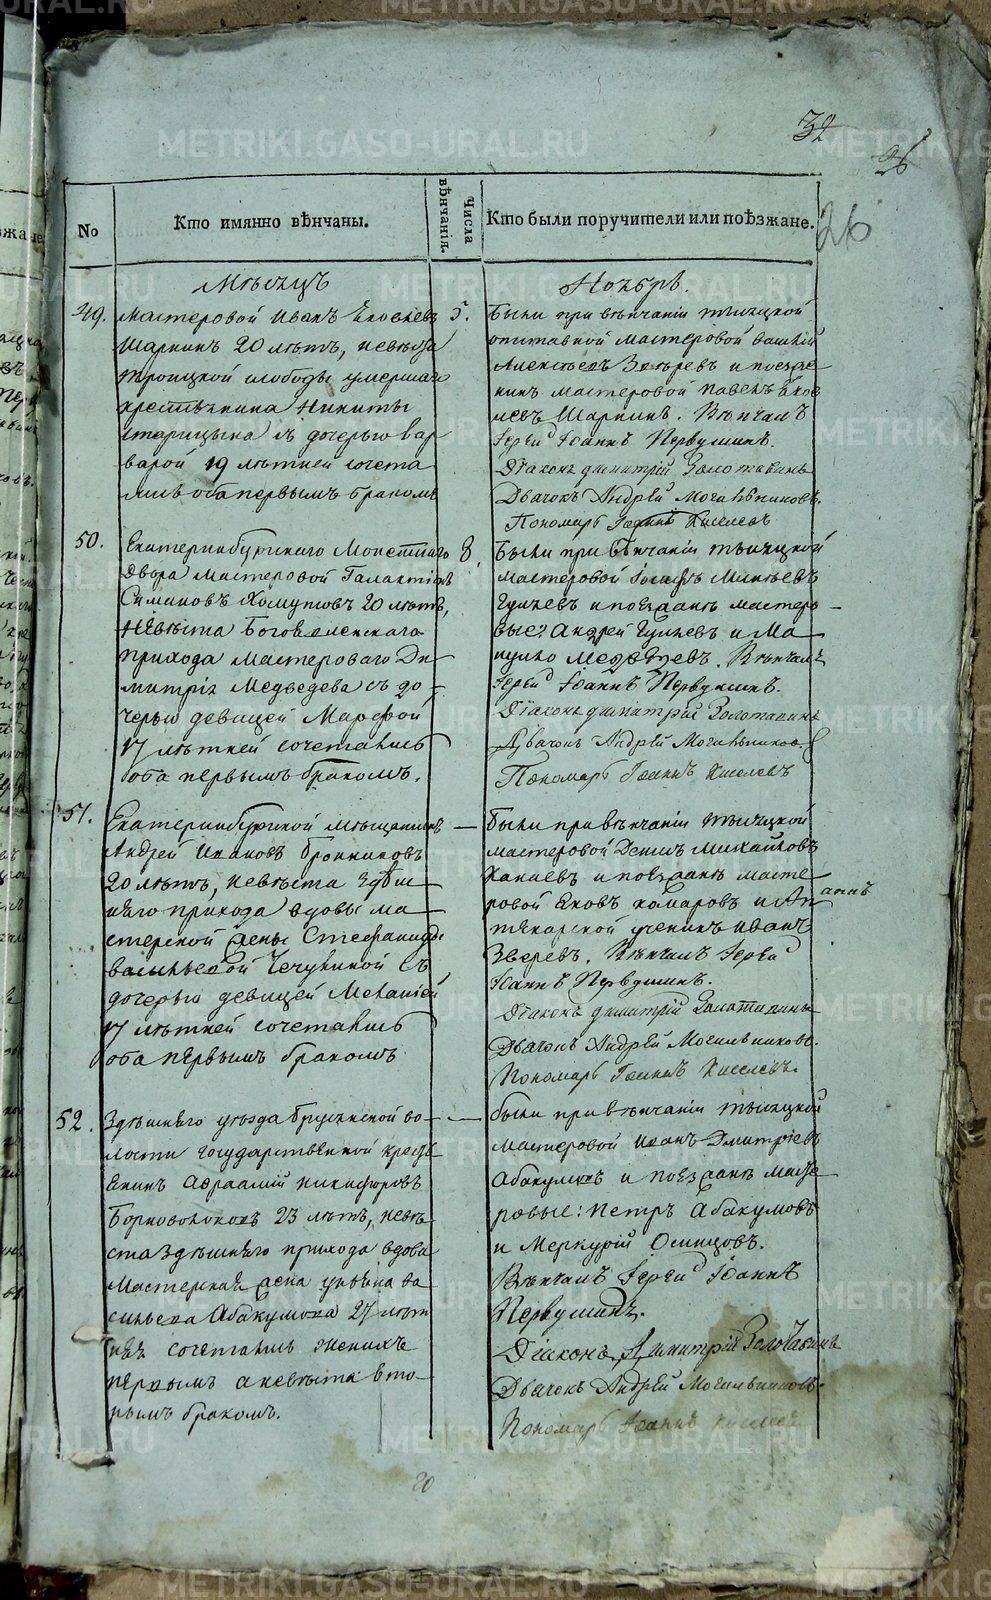 32
26
26
№
Кто имянно вѣнчаны.
Числа вѣнчанія.
Кто были поручители или поѣзжане.
Мѣсяцъ
Ноябрь.
49.
Мастеровой Иванъ Яковлевъ
Шаркинъ 20 лѣтъ, невѣста
Троицкой слободы умершаго
крестьянина Никиты
Старицына съ дочерью Вар-
варой 19 лѣтней сочета
лись оба первымъ бракомъ
5.
Были при вѣнчаніи тысяцкой
отставной мастеровой
Алексѣевъ и поезжа
нинъ мастеровой Павелъ Яков
левъ Шаркинъ. Вѣнчалъ
Іерей Іоаннъ Первушинъ.
Діаконъ Димитрій Золотавинъ
Дьячокъ Андрей Могильниковъ.
Пономарь Іоаннъ Киселевъ
50.
Екатеринбургскаго Монетнаго
Двора мастеровой Галактіонъ
Симановъ Хомутовъ 20 лѣтъ,
Невѣста Богоявленскаго
прихода мастероваго Ди-
митрія Медведева съ до-
черью девицей Марфой
17 лѣтней сочетались
оба первымъ бракомъ.
8.
Были при вѣнчаніи тысяцкой
мастеровой
и поезжане мастеро-
вые: Андрей и Ма
Медведевъ. Вѣнчалъ
Іерей Іоаннъ Первушинъ.
Діаконъ Димитрій Золотавинъ
Дьячокъ Андрей Могильниковъ.
Пономарь Іоаннъ Киселевъ
51.
Екатеринбургской мѣщанинъ
Андрей Ивановъ Бронниковъ
20 лѣтъ, невѣста здѣш-
няго прихода вдовы ма-
стерской жены Стефаниды
Васильевой Чечулиной съ
дочерью девицей Меланіей
17 лѣтней сочетались
оба первымъ бракомъ
—
Были при вѣнчаніи тысяцкой
мастеровой Денисъ Михайловъ
Ханаевъ и поезжане масте
ровой Яковъ Комаровъ и Ап
текарской ученикъ Иванъ
Зверевъ. Вѣнчалъ Іерей
Іоаннъ Первушинъ.
Діаконъ Димитрій Золотавинъ
Дьячокъ Андрей Могильниковъ.
Пономарь Іоаннъ Киселевъ.
52.
Здѣшняго уѣзда Брусянской во-
лости государственной кресть
янинъ Авраамій Никифоровъ
Борноволоковъ 23 лѣтъ, невѣ-
ста здѣшняго прихода вдова
мастерская жена Ва
сильева Абакумова 27 лѣт
няя сочетались женихъ
первымъ а невѣста вто-
рымъ бракомъ.
—
были при вѣнчаніи тысяцкой
мастеровой Иванъ Дмитріевъ
Абакумовъ и поезжане масте
ровые: Петръ Абакумовъ
и Меркурій Осинцовъ.
Вѣнчалъ Іерей Іоаннъ
Первушинъ.
Діаконъ Димитрій Золотавинъ
Дьячокъ Андрей Могильниковъ.
Пономарь Іоаннъ Киселевъ
20
METRIKI.GASO-URAL.RU